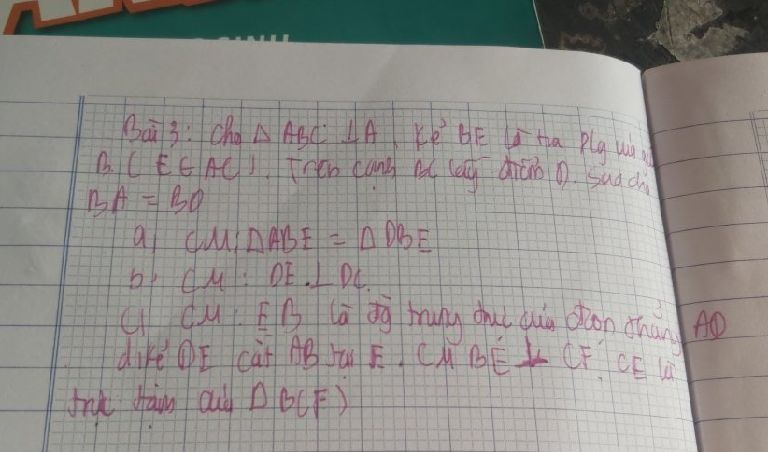 Bài 3: Cho Δ ABC ⊥A, kẻ BE là tia plg của
B. (E ∈ AC). Trên cạnh BC lấy điểm D. sao cho
BA = BD
a) CM: ΔABE = Δ DBE
b) CM: DE ⊥ DC.
c) CM: EB là đg trung trực của đoạn thẳng AD
d. kẻ DE cắt AB tại F. CM BE ⊥ CF, (E là
trực tâm của Δ BCF)